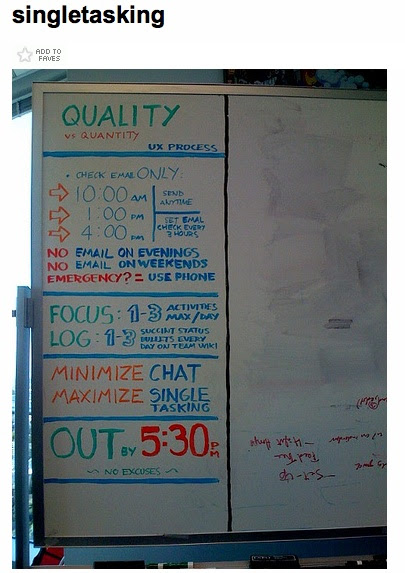 singletasking
ADD TO
FAVES
QUALITY
VS QUANTITY
UX PROCESS
• CHECK EMAIL ONLY:
10:00 AM
1:00 PM
4:00 PM
SEND
ANYTIME
SET EMAIL
CHECK EVERY
3 HOURS
NO EMAIL ON EVENINGS
NO EMAIL ON WEEKENDS
EMERGENCY? = USE PHONE
FOCUS: 1-3 ACTIVITIES
MAX/DAY
LOG: 1-3 SUCCINT STATUS
BULLETS EVERY
DAY ON TEAM WIKI
MINIMIZE CHAT
MAXIMIZE SINGLE
TASKING
OUT BY 5:30 PM
~ NO EXCUSES ~